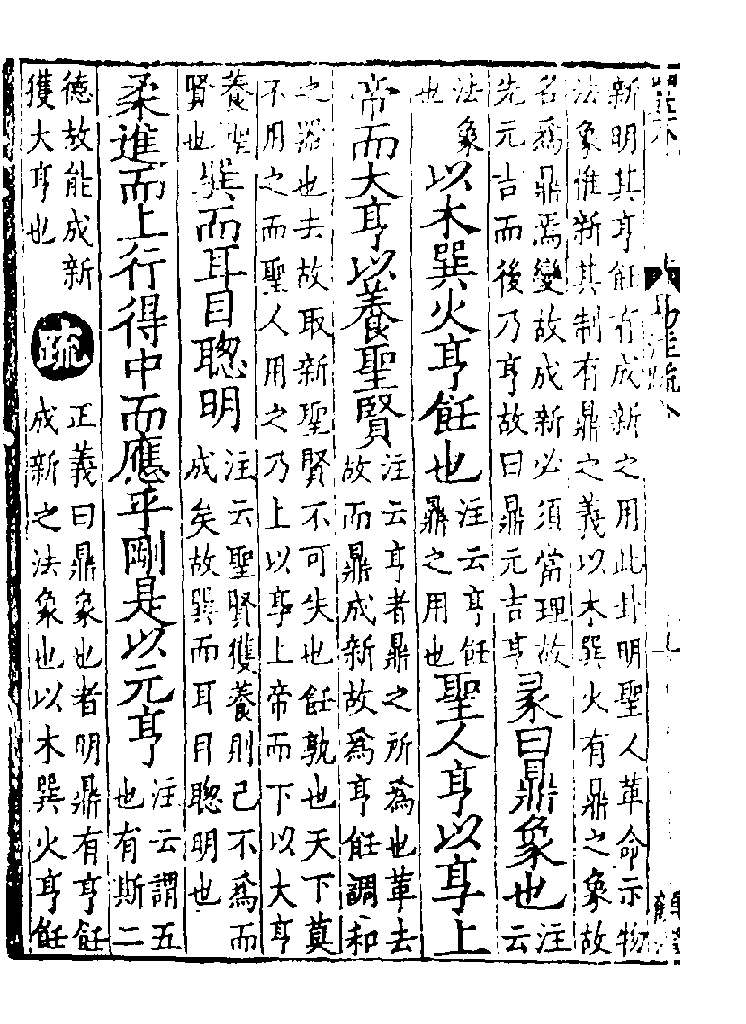 新明其亨飪有成新之用此卦明聖人革命示物
法象惟新其制有鼎之義以木巽火有鼎之象故
名為鼎焉變故成新必須當理故
先元吉而後乃亨故曰鼎元吉亨
彖曰鼎象也
注
云
法象
也
以木巽火亨飪也
注云亨飪
鼎之用也
聖人亨以享上
帝而大亨以養聖賢
注云亨者鼎之所為也革去
故而鼎成新故為亨飪調和
之器也去故取新聖賢不可失也飪孰也天下莫
不用之而聖人用之乃上以享上帝而下以大亨
養聖
賢也
巽而耳目聰明
注云聖賢獲養則己不為而
成矣故巽而耳目聰明也
柔進而上行得中而應乎剛是以元亨
注云謂五
也有斯二
德故能成新
獲大亨也
疏
正義曰鼎象也者明鼎有亨飪
成新之法象也以木巽火亨飪